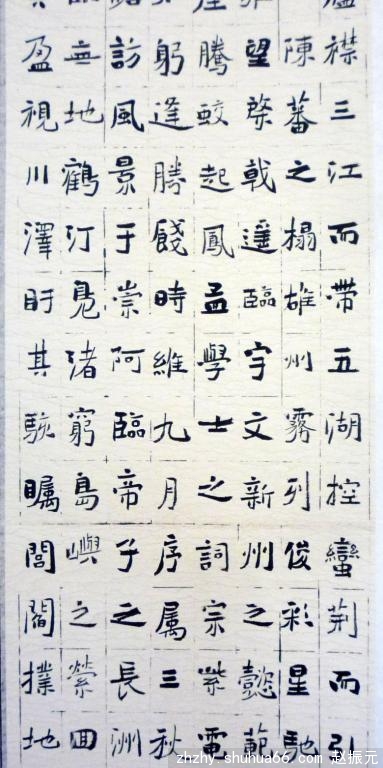 襟三江而帶五湖控蠻荆而引
陳蕃之榻雄州霧列俊彩星馳
望棨戟遥臨宇文新州之懿範
騰蛟起鳳孟學士之詞宗紫電
躬逢勝餞時維九月序属三秋
訪風景于崇阿臨帝子之長洲
無地鶴汀鳧渚窮島嶼之縈囬
盈視川澤盱其駭矚閭閻撲地
zhzhy.shuhua66.com 赵振元